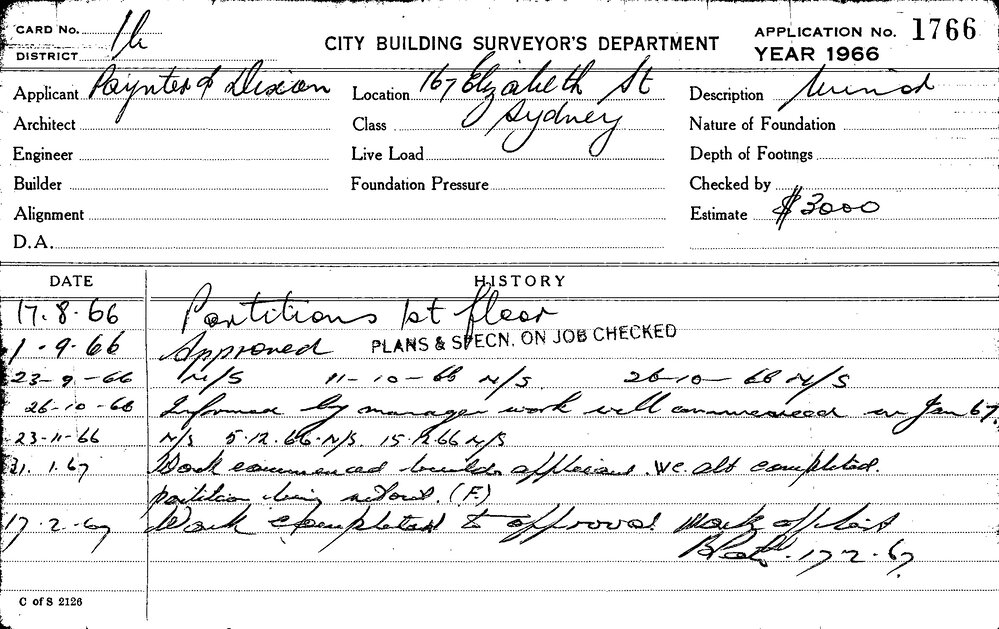 CARD No. 16
DISTRICT
CITY BUILDING SURVEYOR'S DEPARTMENT
APPLICATION No. 1766
YEAR 1966
Applicant Paynter & Dixon
Location 167 Elizabeth St
Sydney
Description Minor
Architect
Class
Nature of Foundation
Engineer
Live Load
Depth of Footings
Builder
Foundation Pressure
Checked by
Alignment
Estimate $3000
D.A.
DATE HISTORY
17.8.66 Partitions 1st floor
1-9-66 Approved PLANS & SPECN. ON JOB CHECKED
23-9-66 N/S 11-10-66 N/S. 26-10-66 N/S
26-10-66 Informed by manager work will commenced in Jan 67.
23-11-66 N/S 5.12.66.N/S. 15.12.66 N/S
21.1.67 Work commenced builder applicant. W.C. alt completed.
partition being (F.)
17-2-67 Work completed to approval
17-2-67
C of S 2126